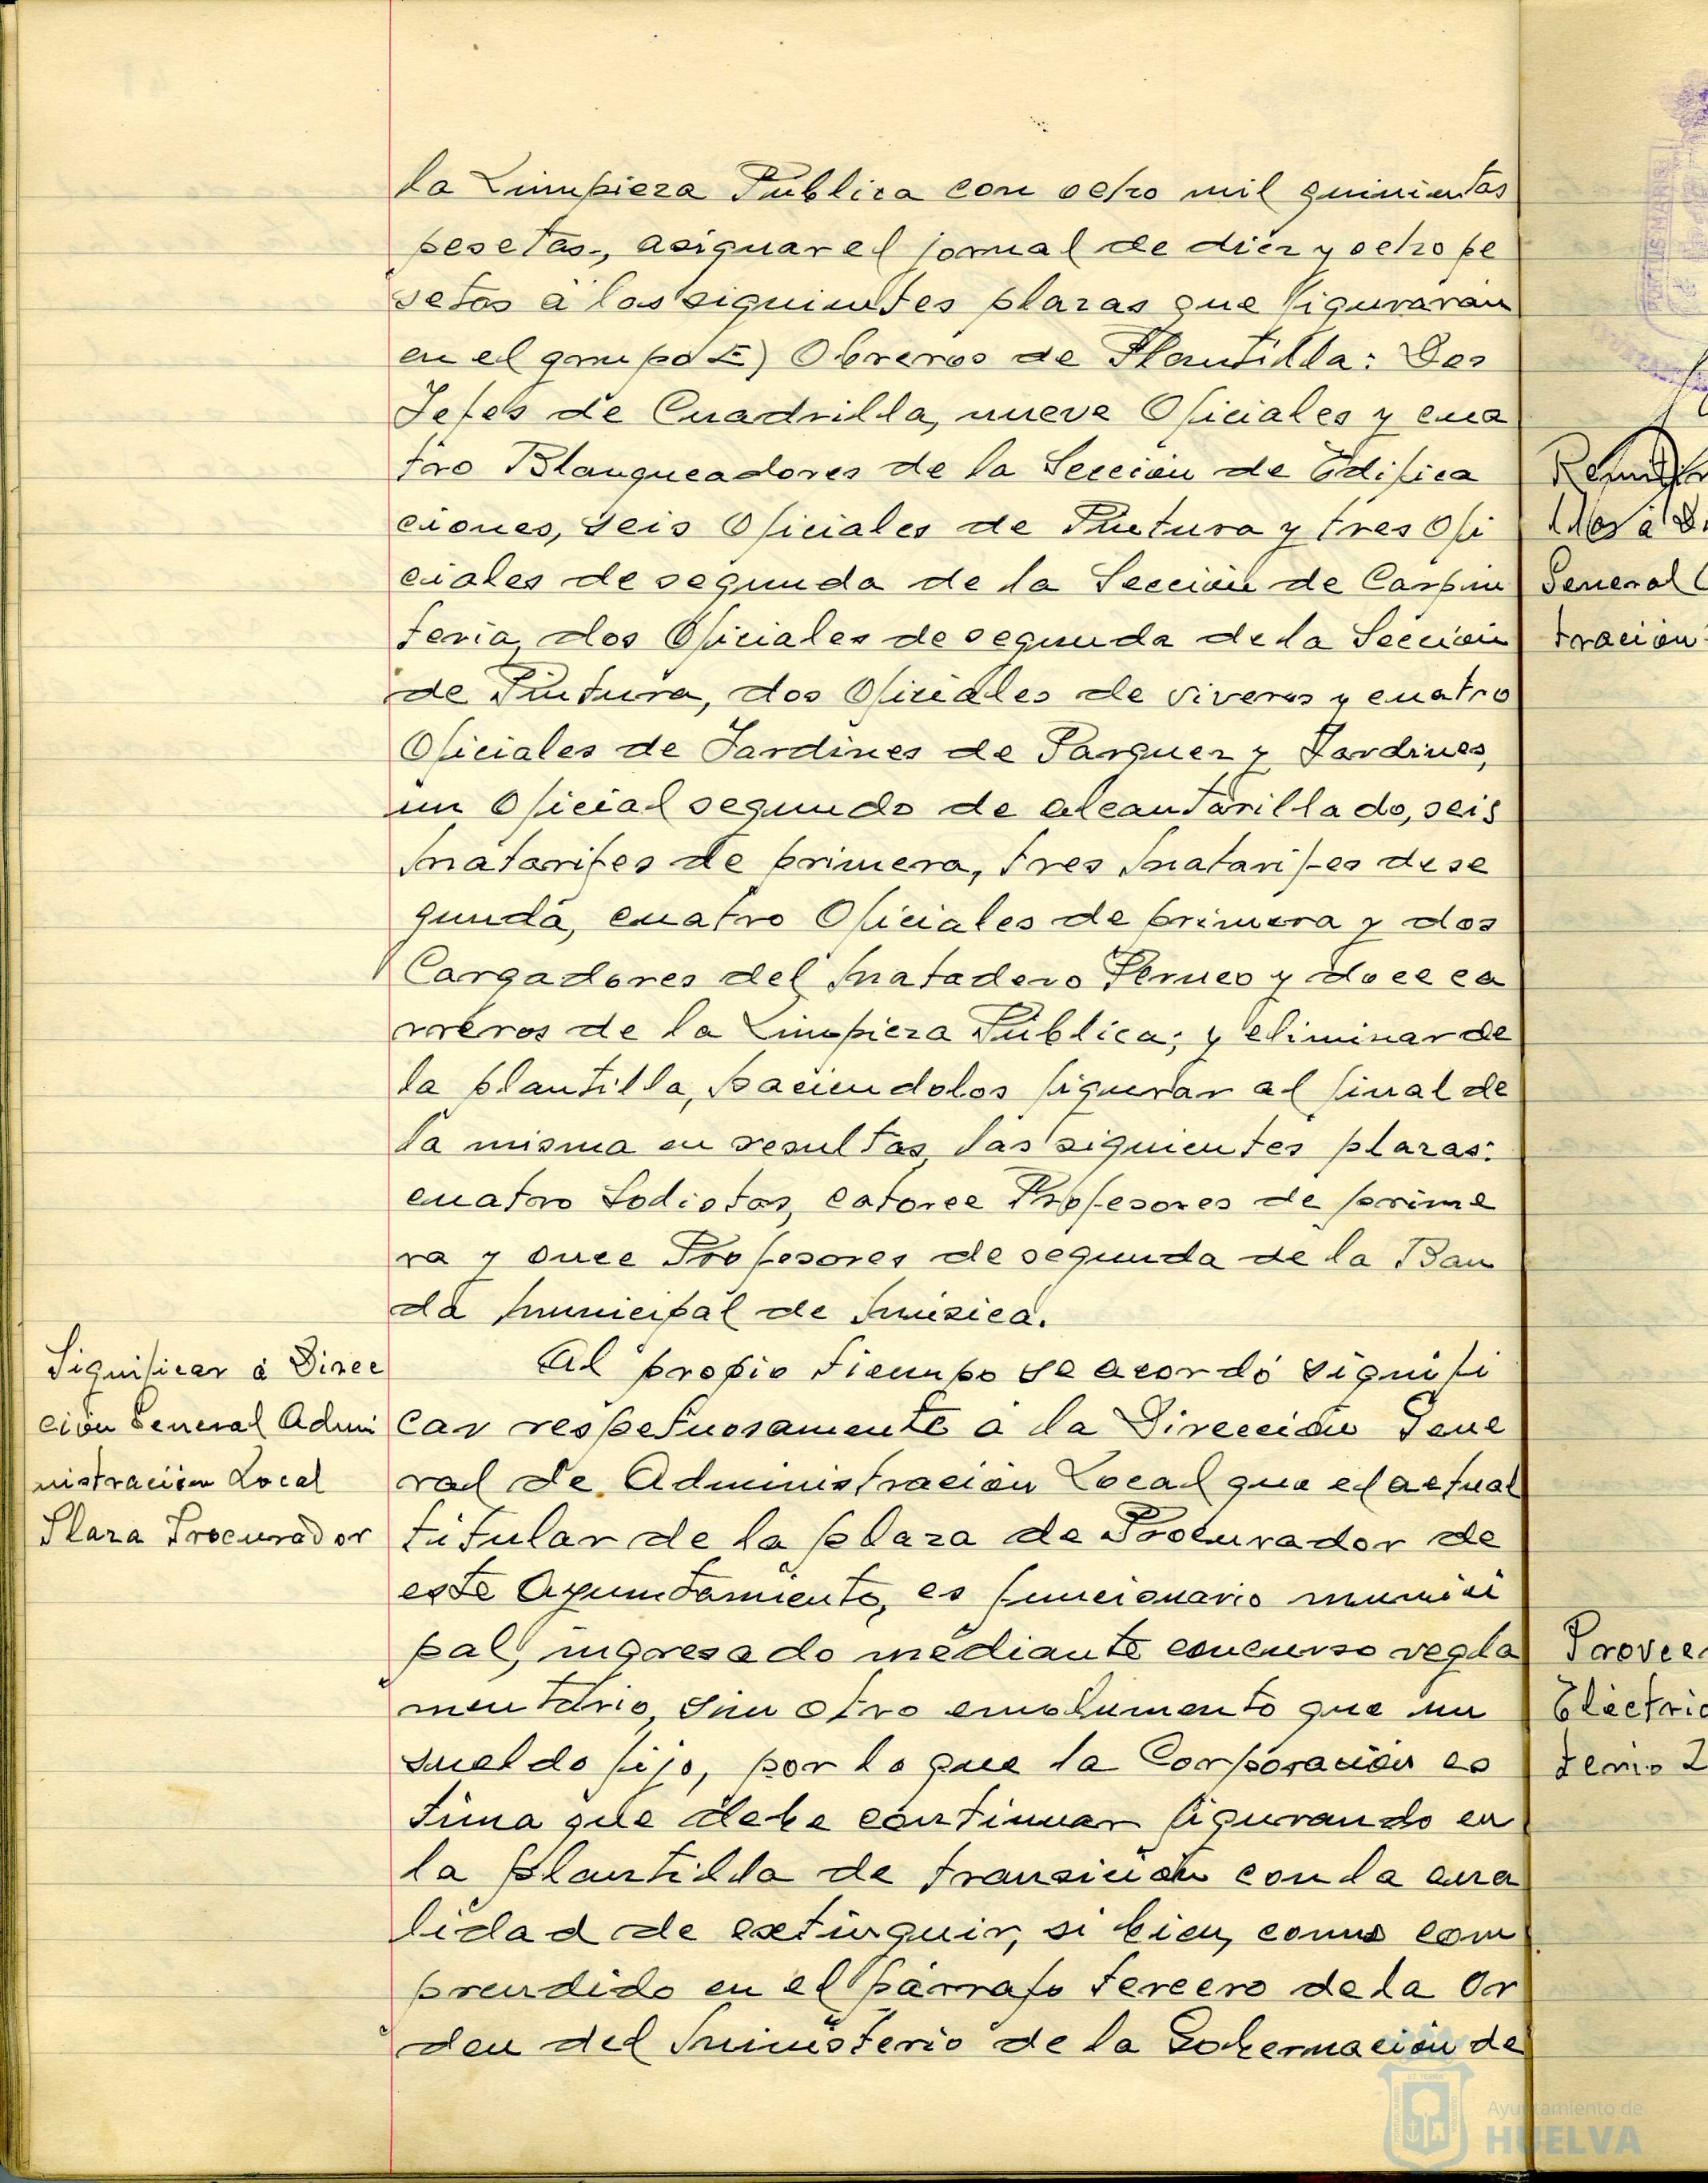 la Limpieza Pública con ocho mil quinientas
pesetas, asignar el jornal de diez y ocho pe
setas a las siguientes plazas que figurarán
en el grupo E) Obreros de Plantilla: Dos
Jefes de Cuadrilla, nueve Oficiales y cua
tro Blanqueadores de la Sección de Edifica
ciones, seis Oficiales de Pintura y tres Ofi
ciales de segunda de la Sección de Carpin
tería, dos Oficiales de segunda de la Sección
de Pintura, dos Oficiales de viveros y cuatro
Oficiales de Jardines de Parques y Jardines,
un Oficial segundo de alcantarillado, seis
Matarifes de primera, tres Matarifes de se
gunda, cuatro Oficiales de primera y dos
Cargadores del Matadero Público y doce ca
rreros de la Limpieza Pública; y eliminar de
la plantilla, haciendolos figurar al final de
la misma en resultas, las siguientes plazas:
cuatro Solistas, catorce Profesores de prime
ra y once Profesores de segunda de la Ban
da Municipal de Música.
Significar a Direc
ción General Admi
nistración Local
Plaza Procurador
Al propio tiempo se acordó signifi
car respetuosamente a la Dirección Gene
ral de Administración Local que el actual
titular de la plaza de Procurador de
este Ayuntamiento, es funcionario munici
pal, ingresado mediante concurso regla
mentario, sin otro emolumento que un
sueldo fijo, por lo que la Corporación es
tima que debe continuar figurando en
la plantilla de transición con la cua
lidad de extinguir, si bien, como com
prendido en el párrafo tercero de la Or
den del Ministerio de la Gobernación de
General
tración
Provee
Electric
terio 2
Ayuntamiento de
HUELVA